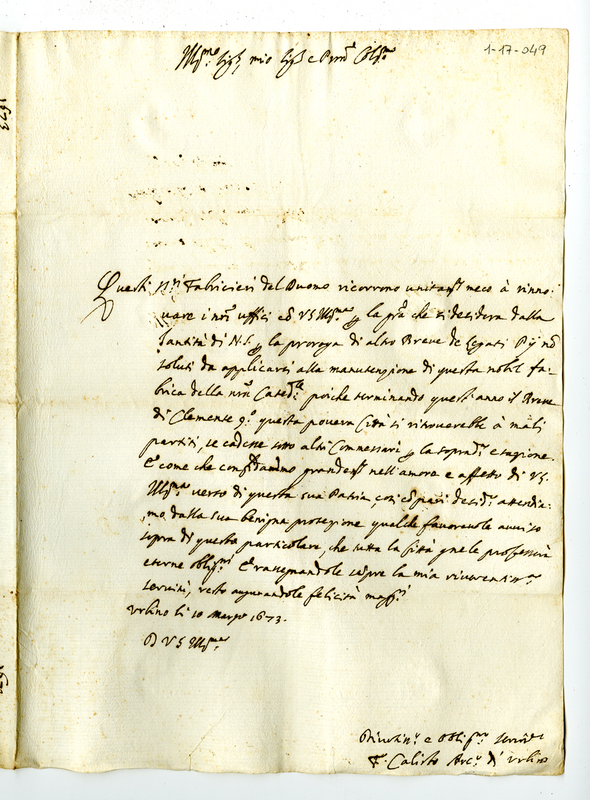 1-17-049
Ill.mo Sig.re mio Sig.re e Pron Col.mo
1673
Questi SS.ri Fabricieri del Duomo ricorrono unitam.te meco à rinno:
uare i nri uffici cõ VS Ill.ma p la pña che si desidera dalla
Santità di N.S. p la proroga di altro Breve de Legati Pij nõ
soluti da applicarsi alla manutenzione di questa nobil fa:
brica della nra Cated.le poiche terminando quest'anno il Breve
di Clemente 9.o questa povera Città si ritrouerebbe à mali
partiti, se cadesse sotto altri Commessari p la sopradᵃ cagione.
E come che confidiamo grandem.te nell'amore e affetto di VS.
Ill.ma verso di questa sua Patria, così cõ pari desid.o attendia:
mo dalla sua benigna protezione qualche fauoreuole auuiso
sopra di questo particolare, che tutta la Città gne le professerà
eterne oblig.ni E rassegnandole sẽpre la mia riuerentiss.ma
seruitù, resto augurandole felicità mass.e
Urbino li 10 Marzo 1673.
D VS Ill.ma
Diuotiss.o e Obblig.mo Seruid.e
F. Calisto Arc.o d' Urbino
1673